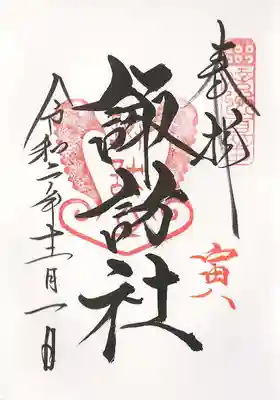 奉拝
寅八
諏訪社
令和二年十一月一日